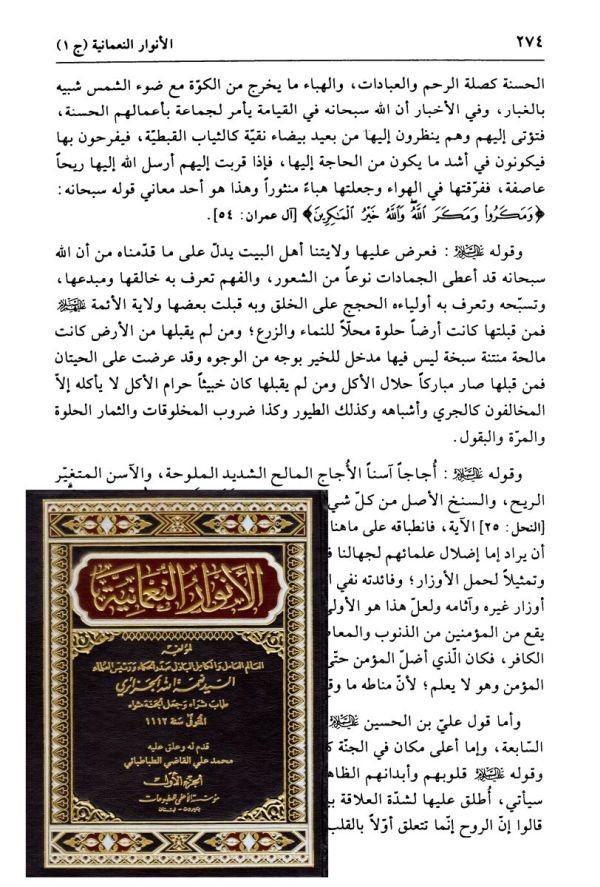 ٢٧٤ الأنوار النعمانية (ج ١)
الحسنة كصلة الرحم والعبادات، والهباء ما يخرج من الكوّة مع ضوء الشمس شبيه
بالغبار، وفي الأخبار أن الله سبحانه في القيامة يأمر لجماعة بأعمالهم الحسنة،
فتؤتى إليهم وهم ينظرون إليها من بعيد بيضاء نقيّة كالثياب القبطيّة، فيفرحون بها
فيكونون في أشد ما يكون من الحاجة إليها، فإذا قربت إليهم أرسل الله إليها ريحاً
عاصفة، ففرّقتها في الهواء وجعلتها هباءً منثوراً وهذا هو أحد معاني قوله سبحانه:
﴿وَمَكَرُوا۟ وَمَكَرَ ٱللَّهُ وَٱللَّهُ خَيْرُ ٱلْمَٰكِرِينَ﴾ [آل عمران: ٥٤].
وقوله عليه السلام : فعرض عليها ولايتنا أهل البيت يدلّ على ما قدّمناه من أن الله
سبحانه قد أعطى الجمادات نوعاً من الشعور، والفهم تعرف به خالقها ومبدعها،
وتسبّحه وتعرف به أولياءه الحجج على الخلق وبه قبلت بعضها ولاية الأئمة عليهم السلام
فمن قبلتها كانت أرضاً حلوة محلّاً للنماء والزرع؛ ومن لم يقبلها من الأرض كانت
مالحة منتنة سبخة ليس فيها مدخل للخير بوجه من الوجوه وقد عرضت على الحيتان
فمن قبلها صار مباركاً حلال الأكل ومن لم يقبلها كان خبيثاً حرام الأكل لا يأكله إلاّ
المخالفون كالجري وأشباهه وكذلك الطيور وكذا ضروب المخلوقات والثمار الحلوة
والمرّة والبقول.
وقوله عليه السلام : أُجاجاً آسناً الأُجاج المالح الشديد الملوحة، والآسن المتغيّر
الريح، والسنخ الأصل من كلّ شي
[النحل: ٢٥] الآية، فانطباقه على ماهنا
أن يراد إما إضلال علمائهم لجهالنا
وتمثيلاً لحمل الأوزار؛ وفائدته نفي
أوزار غيره وآثامه ولعلّ هذا هو الأولى
يقع من المؤمنين من الذنوب والمعا
الكافر، فكان الّذي أضل المؤمن حتّى
المؤمن وهو لا يعلم؛ لأنّ مناطه ما
وأما قول عليّ بن الحسين عليه السلام
السّابعة، وإما أعلى مكان في الجنّة
وقوله عليه السلام قلوبهم وأبدانهم الظاه
سيأتي، أُطلق عليها لشدّة العلاقة
قالوا إنّ الروح إنّما تتعلق أوّلاً بالقلب
الأنوار النعمانية
لمؤلفه
العالم العامل والكامل الباذل صدر الحكماء ورئيس العلماء
السيد نعمة الله الجزائري
طاب ثراه وجعل الجنة مثواه
المتوفى سنة ١١١٢
قدم له وعلق عليه
محمد علي القاضي الطباطبائي
الجزء الأول
مؤسسة الأعلمي للمطبوعات
بيروت - لبنان